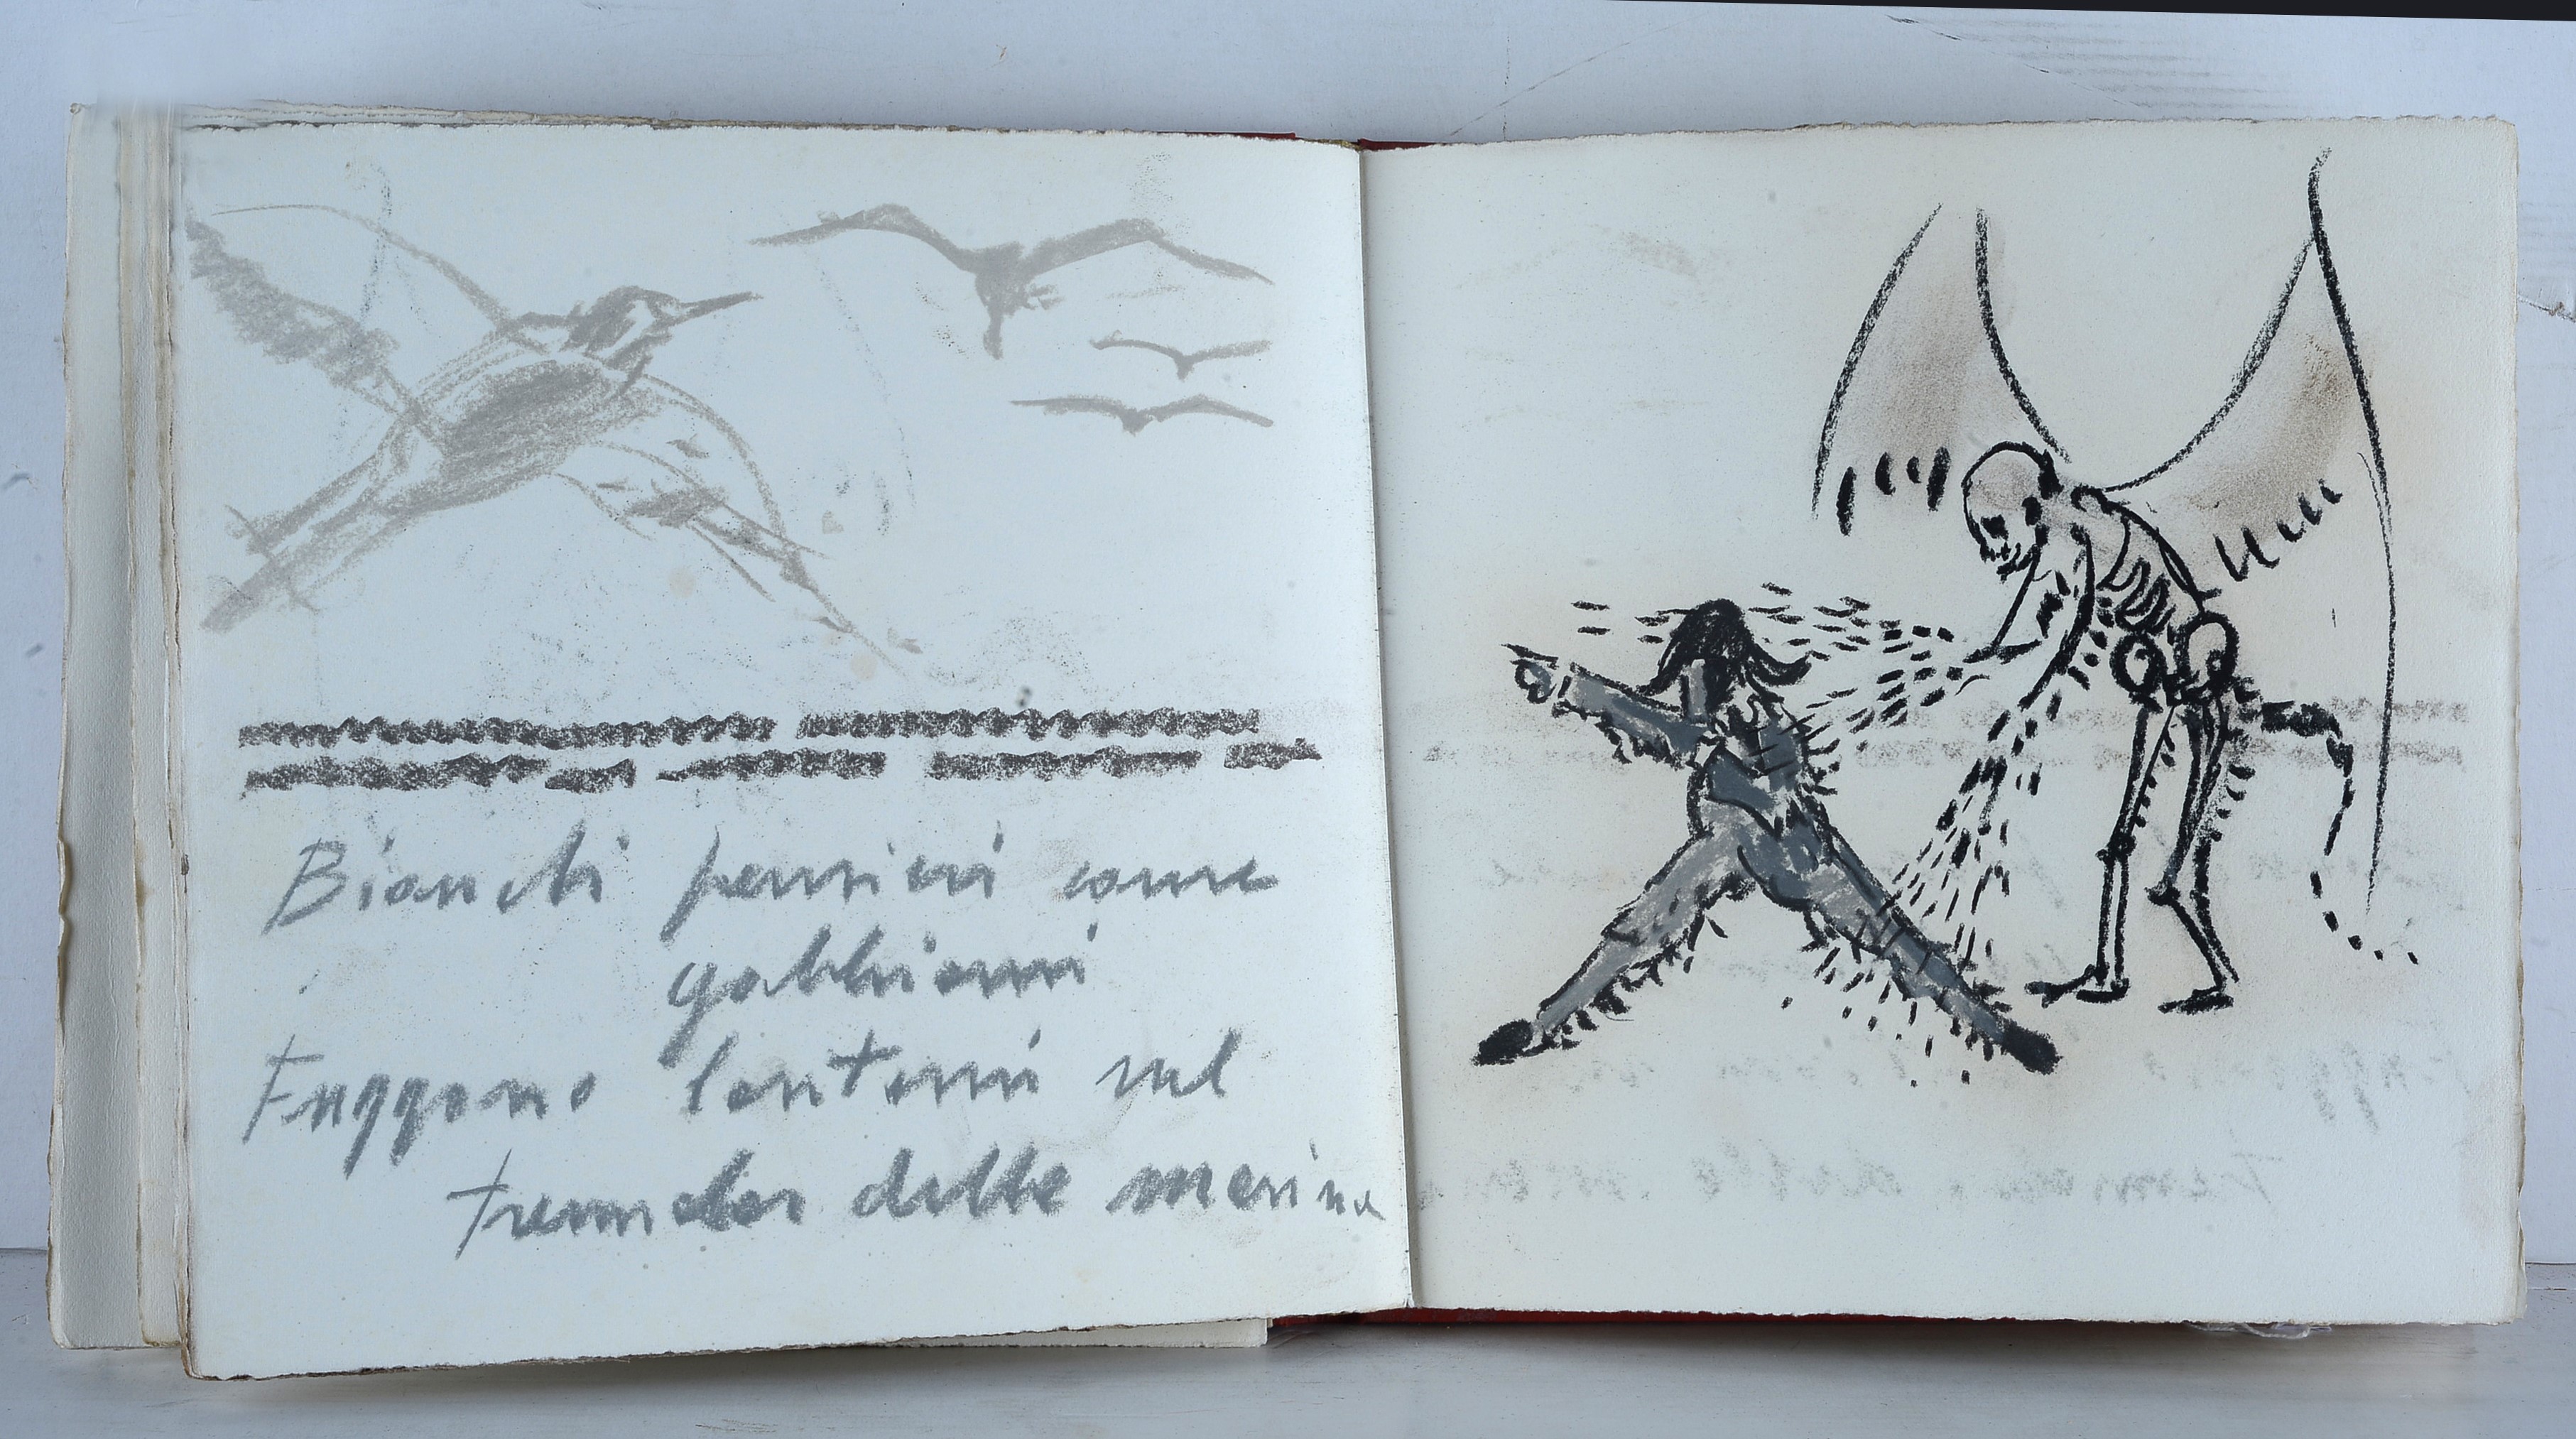 Bianchi pensieri come
gabbiani
Fuggono lontani sul
tremolar delle marine